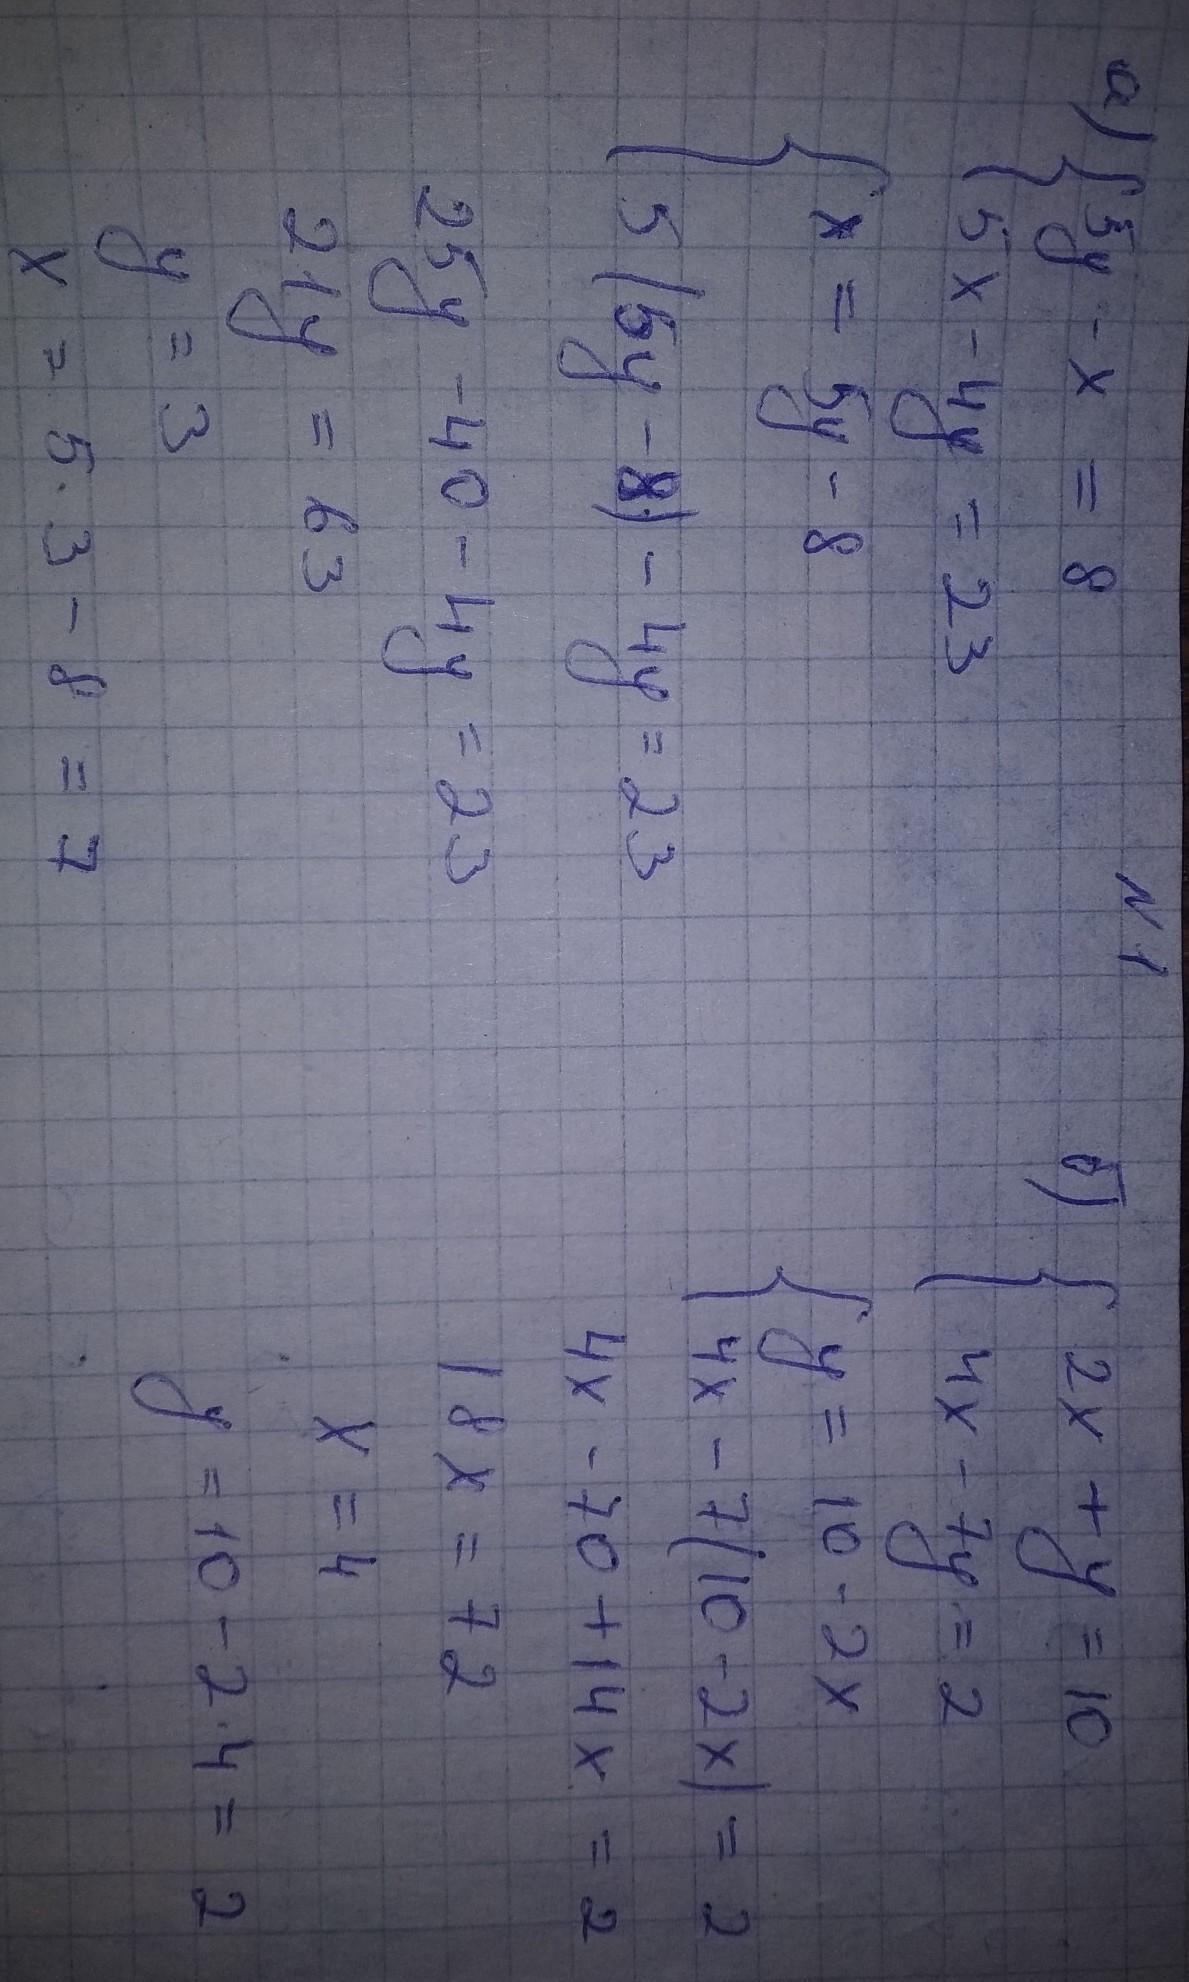 N 1
а) { 5y - x = 8
5x - 4y = 23
{ x = 5y - 8
5(5y - 8) - 4y = 23
25y - 40 - 4y = 23
21y = 63
y = 3
x = 5 · 3 - 8 = 7
б) { 2x + y = 10
4x - 7y = 2
{ y = 10 - 2x
4x - 7(10 - 2x) = 2
4x - 70 + 14x = 2
18x = 72
x = 4
y = 10 - 2 · 4 = 2